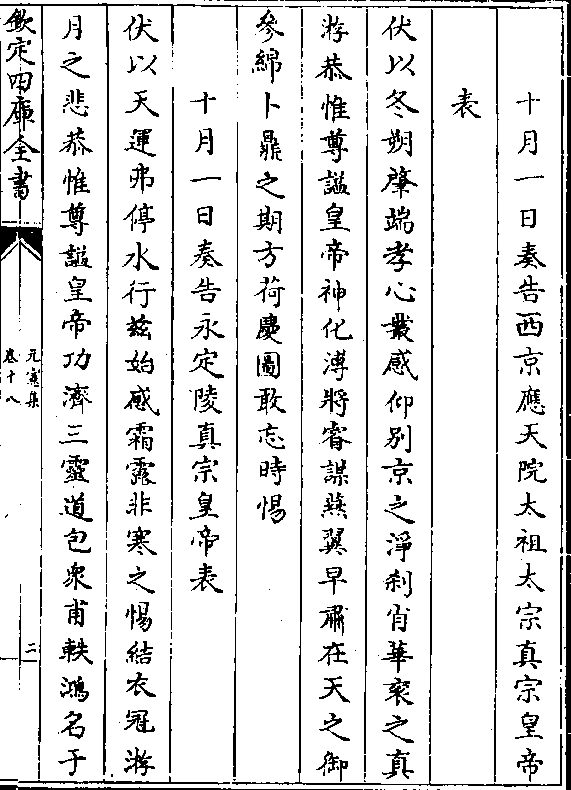 十月一日奏告西京應天院太祖太宗真宗皇帝
表
伏以冬朔肇端孝心叢感仰別京之淨刹肖華衮之真
游恭惟尊諡皇帝神化溥將睿謀燕翼早肅在天之御
參綿卜鼎之期方荷慶圖敢忘時惕
十月一日奏告永定陵真宗皇帝表
伏以天運弗停水行兹始感霜露非寒之惕結衣冠游
月之悲恭惟尊諡皇帝功濟三靈道包衆甫軼鴻名于
欽定四庫全書
元憲集
卷十八
二